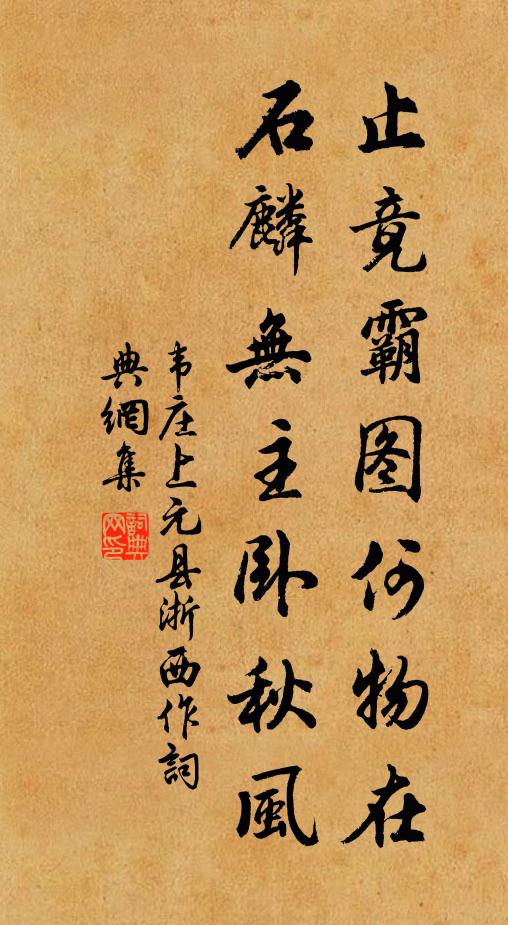 止竟霸图何物在
石麟無主卧秋風
韦庄上元县浙西作詞
典網集
詞典
网印